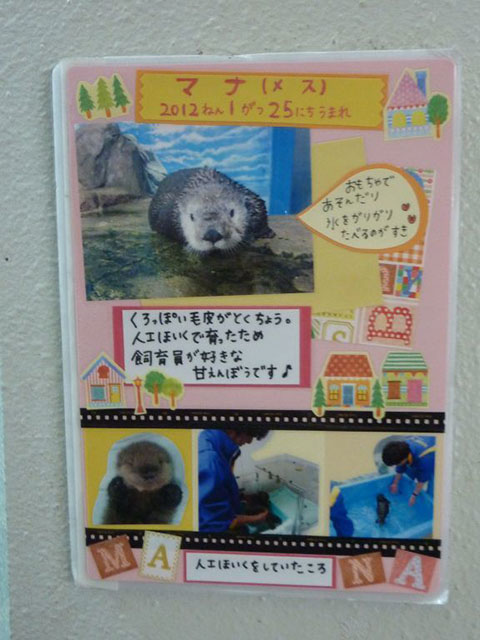 マナ(メス)
2012ねん1がつ25にちうまれ
おもちゃで
あそんだり
氷をガリガリ
たべるのがすき
くろっぽい毛皮がとくちょう。
人工ほいくで育ったため
飼育員が好きな
甘えんぼうです♪
B
MANA
人工ほいくをしていたころ